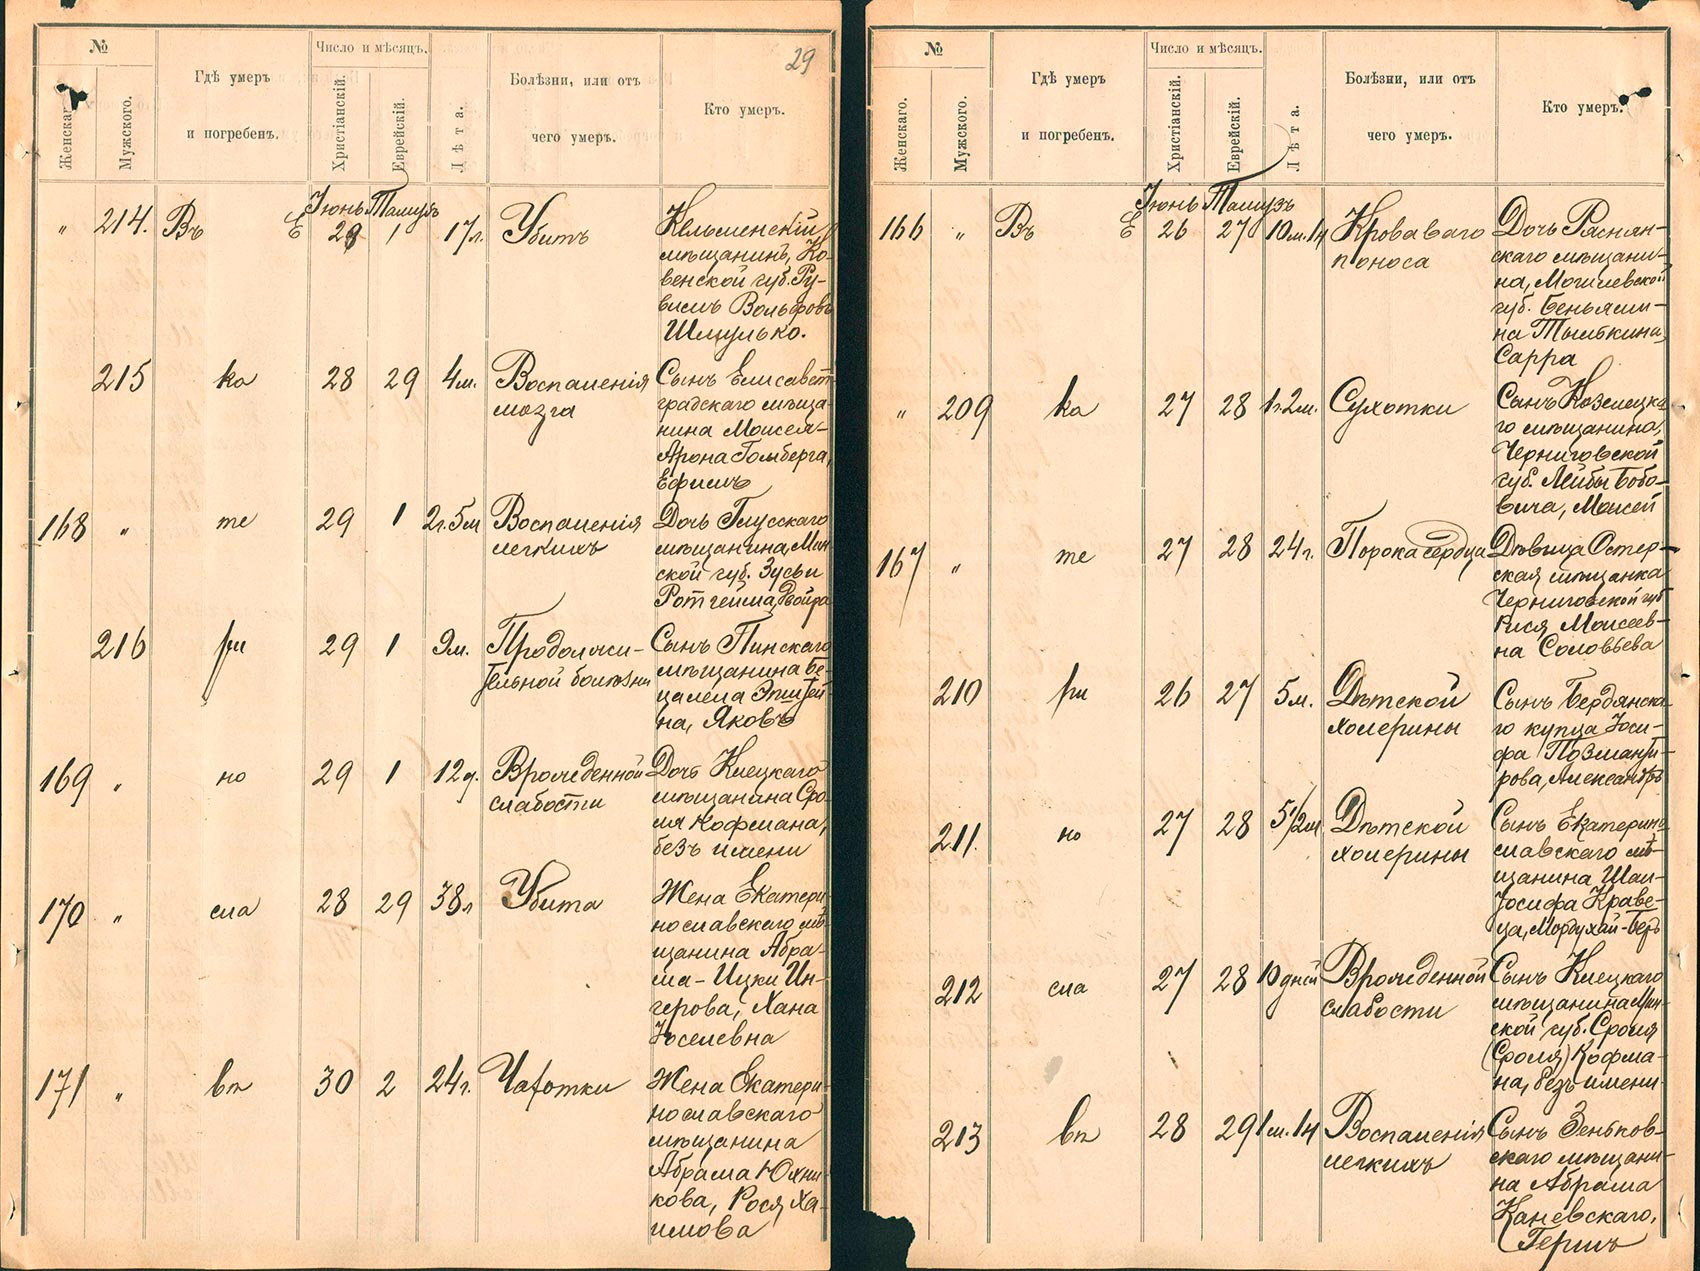 29
№
Женскаг
Мужского.
Гдѣ умеръ
и погребенъ.
Число и мѣсяцъ.
Христіанскій.
Еврейскій.
Лѣта.
Болѣзни, или отъ
чего умеръ.
Кто умеръ.
Іюнь Тамузъ
„ 214. Въ Е 29 1 17л. Убитъ Кельменскій
мѣщанинъ, Ко-
венской губ. Ру-
вимъ Вольфовъ
Шмулько.
215 ка 28 29 4м. Воспаленія Сынъ Елисавет-
мозга градскаго мѣща-
нина Моисея-
Арона Гольберга,
Ефимъ
168 „ те 29 1 2г.5м Воспаленія Дочь Глусскаго
легкихъ мѣщанина, Мин-
ской губ. Зусьи
Ротгейма, Двойра
216 ри 29 1 9м. Продолжи- Сынъ Пинскаго
тельной болѣзни мѣщанина Бе-
цалела Эпштей-
на, Яковъ
169 „ но 29 1 12д. Врожденной Дочь Клецкаго
слабости мѣщанина Сро-
ля Кофмана,
безъ имени
170 „ сла 28 29 38л Убита Жена Екатери-
нославскаго мѣ-
щанина Абра-
ма-Ицки Ин-
герова, Хана
Іоселевна
171 „ вѣ 30 2 24г. Чахотки Жена Екатери-
нославскаго
мѣщанина
Абрама Юхни-
кова, Рося Ха-
имова
№
Женскаго.
Мужского.
Гдѣ умеръ
и погребенъ.
Число и мѣсяцъ.
Христіанскій.
Еврейскій.
Лѣта.
Болѣзни, или отъ
чего умеръ.
Кто умеръ.
Іюнь Тамузъ
166 „ Въ Е 26 27 10м.1н Кроваваго Дочь Раснян-
поноса скаго мѣщани-
на, Могилевской
губ. Беньями-
на Тылькина,
Сарра
„ 209 ка 27 28 1г.2м. Сухотки Сынъ Козелецка-
го мѣщанина,
Черниговской
губ. Лейбы Бобо-
вича, Моисей
167 „ те 27 28 24г. Порока сердца Дѣвица Остер-
ская мѣщанка
Черниговской губ
Рися Моисеев-
на Соловьева
210 ри 26 27 5м. Дѣтской Сынъ Бердянска-
холерины го купца Іоси-
фа Позманти-
рова, Александръ
211. но 27 28 5½м Дѣтской Сынъ Екатерино-
холерины славскаго мѣ-
щанина Шаи-
Іосифа Краве-
ца, Мордухай-Беръ
212 сла 27 28 10 дней Врожденной Сынъ Клецкаго
слабости мѣщанина Мин-
ской губ. Сроля
(Сроля) Кофма-
на, безъ имени
213 вѣ 28 29 1м.1н Воспаленія Сынъ Зеньков-
легкихъ скаго мѣщани-
на Абрама
Каневскаго,
Гершъ